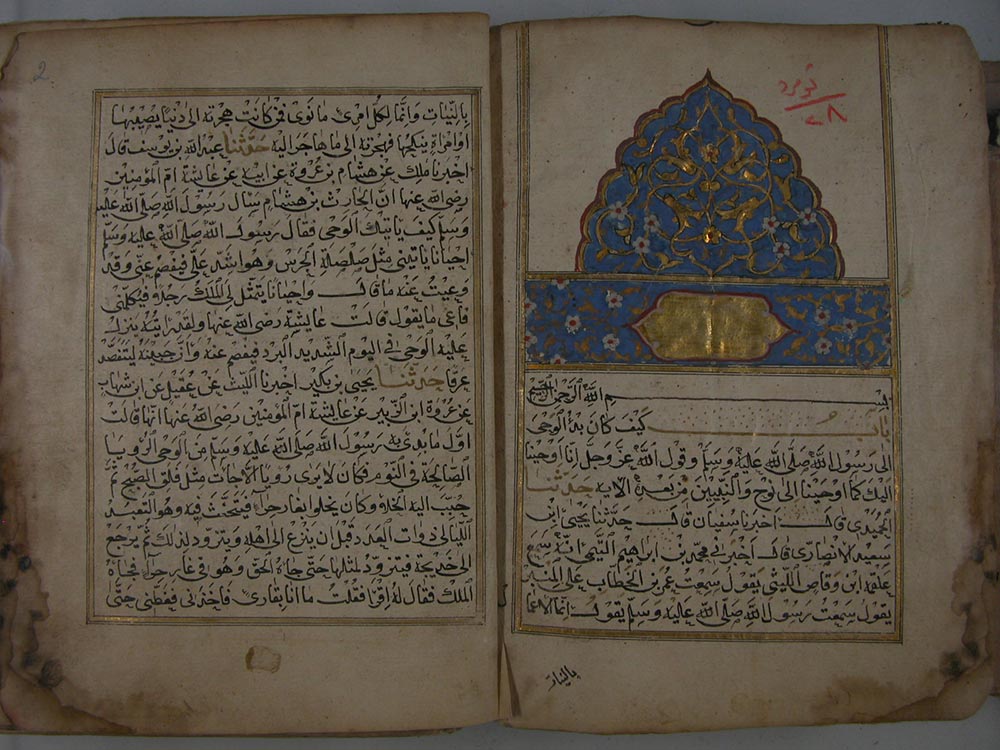 نومرو
٢٨
بسم الله الرحمن الرحيم
باب كيف كان بدؤ الوحي
الى رسول الله صلى الله عليه وسلم وقول الله عز وجل انا اوحينا
اليك كما اوحينا الى نوح والنبيين من بعده الاية حدثنا
الحميدى قال اخبرنا سفيان قال حدثنا يحيى ابن
سعيد الانصارى قال اخبرنى محمد بن ابراهيم التيمى انه سمع
علقمة ابن وقاص الليثى يقول سمعت عمر بن الخطاب على المنبر
يقول سمعت رسول الله صلى الله عليه وسلم يقول انما الاعما
بالنيات
2
بالنيات وانما لكل امرئ ما نوى فمن كانت هجرته الى دنيا يصيبها
او امراة ينكحها فهجرته الى ما هاجر اليه حدثنا عبد الله بن يوسف قال
اخبرنا ملك عن هشام بن عروة عن ابيه عن عايشة ام المؤمنين
رضى الله عنها ان الحارث بن هشام سال رسول الله صلى الله عليه
وسلم كيف ياتيك الوحى فقال رسول الله صلى الله عليه وسلم
احيانا ياتينى مثل صلصلة الجرس وهو اشد على فيفصم عنى وقد
وعيت عنه ما قال واحيانا يتمثل لى الملك رجلا فيكلمنى
فاعى ما يقول قالت عايشة رضى الله عنها ولقد رايته ينزل
عليه الوحى فى اليوم الشديد البرد فيفصم عنه وان جبينه ليتفصد
عرقا حدثنا يحيى بن بكير اخبرنا الليث عن عقيل عن ابن شهاب
عن عروة ابن الزبير عن عايشة ام المؤمنين رضى الله عنها انها قالت
اول ما بدئ به رسول الله صلى الله عليه وسلم من الوحى الرويا
الصالحة فى النوم فكان لا يرى رويا الا جات مثل فلق الصبح ثم
حبب اليه الخلاء وكان يخلوا بغار حرا فيتحنث فيه وهو التعبد
الليالى ذوات العدد قبل ان ينزع الى اهله ويتزود لذلك ثم يرجع
الى خديجة فيتزود لمثلها حتى جاه الحق وهو فى غار حرا فجاه
الملك فقال له اقرا فقلت ما انا بقارئ فاخذنى فغطنى حتى